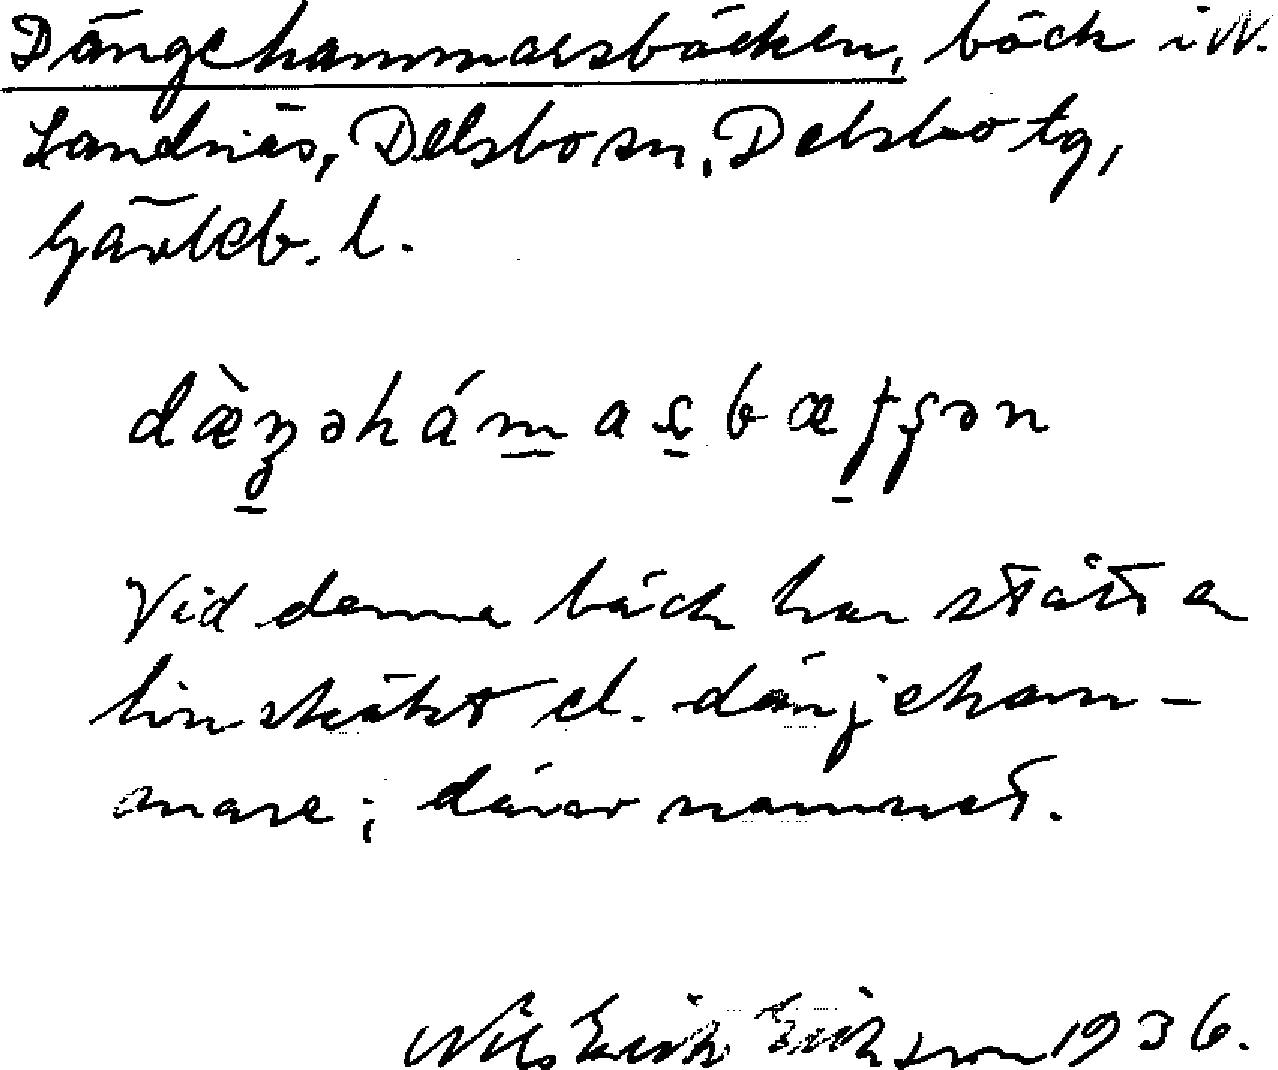 Dängehammarsbäcken, bäck i N.
Sannäs, Delsbo sn, Delsbo tg,
Gävleb. l.
dæ̀ŋəhámasbæʃʂən
Vid denna bäck har stått en
linskäkt el. dänjeham-
mare; därav namnet.
Nils Erik Eriksson 1936.